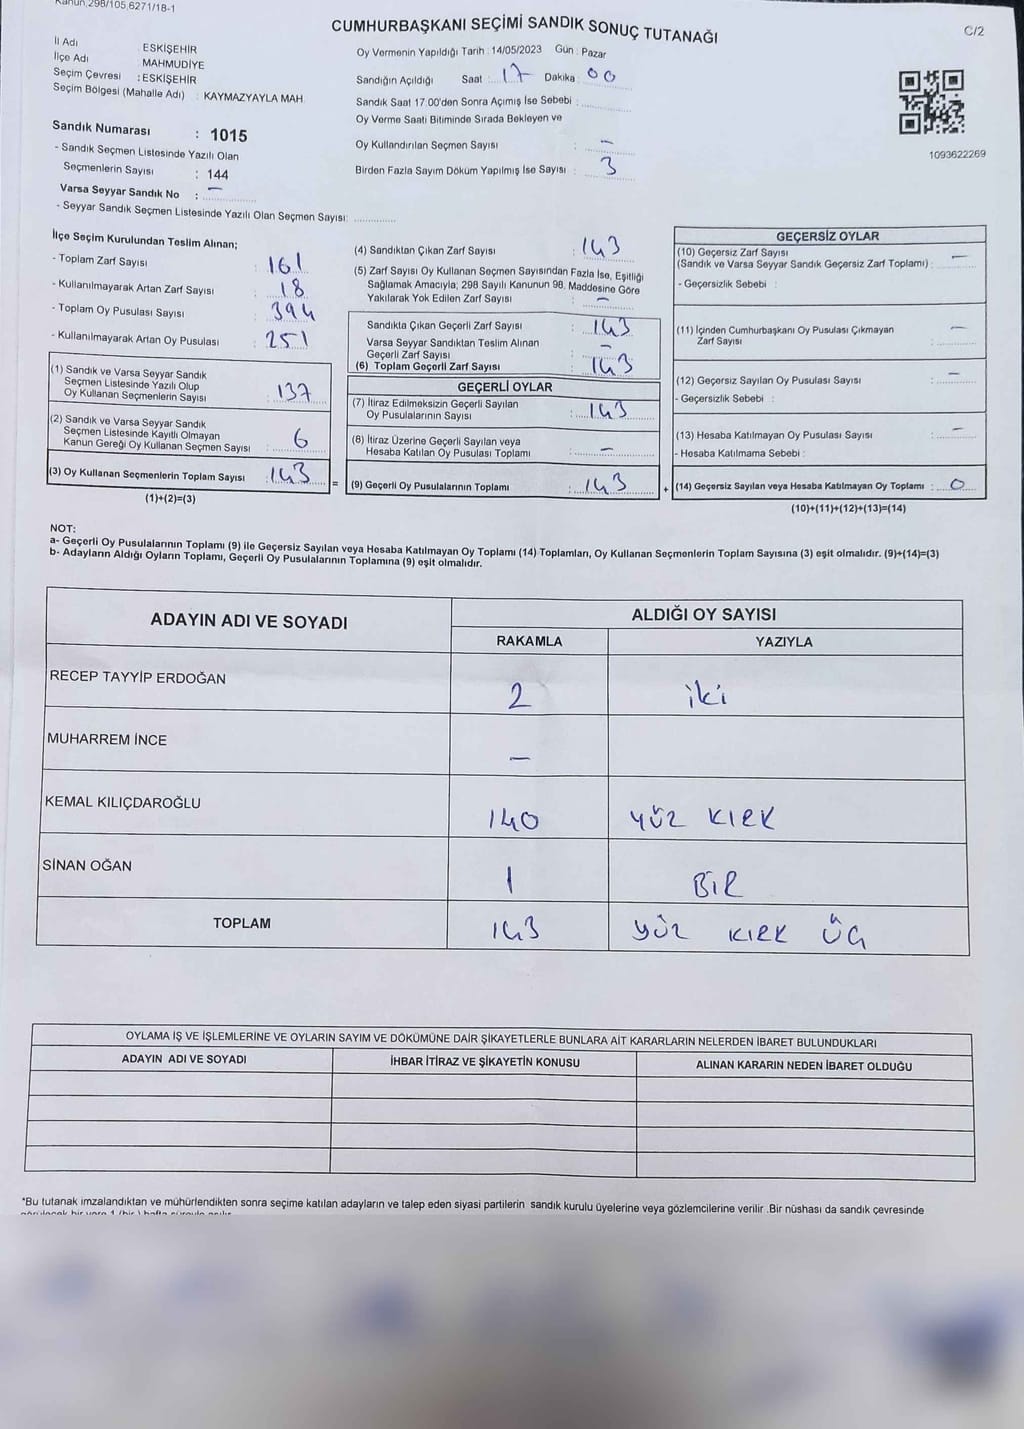 Kanun,298/105,6271/18-1
CUMHURBAŞKANI SEÇİMİ SANDIK SONUÇ TUTANAĞI
C/2
İl Adı : ESKİŞEHİR
İlçe Adı : MAHMUDİYE
Seçim Çevresi : ESKİŞEHİR
Seçim Bölgesi (Mahalle Adı) : KAYMAZYAYLA MAH.
Sandık Numarası : 1015
- Sandık Seçmen Listesinde Yazılı Olan
Seçmenlerin Sayısı : 144
Varsa Seyyar Sandık No : –
- Seyyar Sandık Seçmen Listesinde Yazılı Olan Seçmen Sayısı: ..............
Oy Vermenin Yapıldığı Tarih : 14/05/2023 Gün : Pazar
Sandığın Açıldığı Saat : 17 Dakika : 00
Sandık Saat 17.00'den Sonra Açımış İse Sebebi : ..............
Oy Verme Saati Bitiminde Sırada Bekleyen ve
Oy Kullandırılan Seçmen Sayısı : –
Birden Fazla Sayım Döküm Yapılmış İse Sayısı : 3
1093622269
İlçe Seçim Kurulundan Teslim Alınan;
- Toplam Zarf Sayısı : 161
- Kullanılmayarak Artan Zarf Sayısı : 18
- Toplam Oy Pusulası Sayısı : 394
- Kullanılmayarak Artan Oy Pusulası : 251
(1) Sandık ve Varsa Seyyar Sandık
Seçmen Listesinde Yazılı Olup
Oy Kullanan Seçmenlerin Sayısı : 137
(2) Sandık ve Varsa Seyyar Sandık
Seçmen Listesinde Kayıtlı Olmayan
Kanun Gereği Oy Kullanan Seçmen Sayısı : 6
(3) Oy Kullanan Seçmenlerin Toplam Sayısı : 143
(1)+(2)=(3)
=
(4) Sandıktan Çıkan Zarf Sayısı : 143
(5) Zarf Sayısı Oy Kullanan Seçmen Sayısından Fazla İse, Eşitliği
Sağlamak Amacıyla; 298 Sayılı Kanunun 98. Maddesine Göre
Yakılarak Yok Edilen Zarf Sayısı : –
Sandıkta Çıkan Geçerli Zarf Sayısı : 143
Varsa Seyyar Sandıktan Teslim Alınan
Geçerli Zarf Sayısı : –
(6) Toplam Geçerli Zarf Sayısı : 143
GEÇERLİ OYLAR
(7) İtiraz Edilmeksizin Geçerli Sayılan
Oy Pusulalarının Sayısı : 143
(8) İtiraz Üzerine Geçerli Sayılan veya
Hesaba Katılan Oy Pusulası Toplamı : –
(9) Geçerli Oy Pusulalarının Toplamı : 143
+
GEÇERSİZ OYLAR
(10) Geçersiz Zarf Sayısı
(Sandık ve Varsa Seyyar Sandık Geçersiz Zarf Toplamı) : –
- Geçersizlik Sebebi :
(11) İçinden Cumhurbaşkanı Oy Pusulası Çıkmayan
Zarf Sayısı : –
(12) Geçersiz Sayılan Oy Pusulası Sayısı : –
- Geçersizlik Sebebi :
(13) Hesaba Katılmayan Oy Pusulası Sayısı : –
- Hesaba Katılmama Sebebi :
(14) Geçersiz Sayılan veya Hesaba Katılmayan Oy Toplamı : 0
(10)+(11)+(12)+(13)=(14)
NOT:
a- Geçerli Oy Pusulalarının Toplamı (9) ile Geçersiz Sayılan veya Hesaba Katılmayan Oy Toplamı (14) Toplamları, Oy Kullanan Seçmenlerin Toplam Sayısına (3) eşit olmalıdır. (9)+(14)=(3)
b- Adayların Aldığı Oyların Toplamı, Geçerli Oy Pusulalarının Toplamına (9) eşit olmalıdır.
ADAYIN ADI VE SOYADI ALDIĞI OY SAYISI
RAKAMLA YAZIYLA
RECEP TAYYİP ERDOĞAN 2 iki
MUHARREM İNCE –
KEMAL KILIÇDAROĞLU 140 YÜZ KIRK
SİNAN OĞAN 1 BİR
TOPLAM 143 YÜZ KIRK ÜÇ
OYLAMA İŞ VE İŞLEMLERİNE VE OYLARIN SAYIM VE DÖKÜMÜNE DAİR ŞİKAYETLERLE BUNLARA AİT KARARLARIN NELERDEN İBARET BULUNDUKLARI
ADAYIN ADI VE SOYADI İHBAR İTİRAZ VE ŞİKAYETİN KONUSU ALINAN KARARIN NEDEN İBARET OLDUĞU
*Bu tutanak imzalandıktan ve mühürlendikten sonra seçime katılan adayların ve talep eden siyasi partilerin sandık kurulu üyelerine veya gözlemcilerine verilir .Bir nüshası da sandık çevresinde